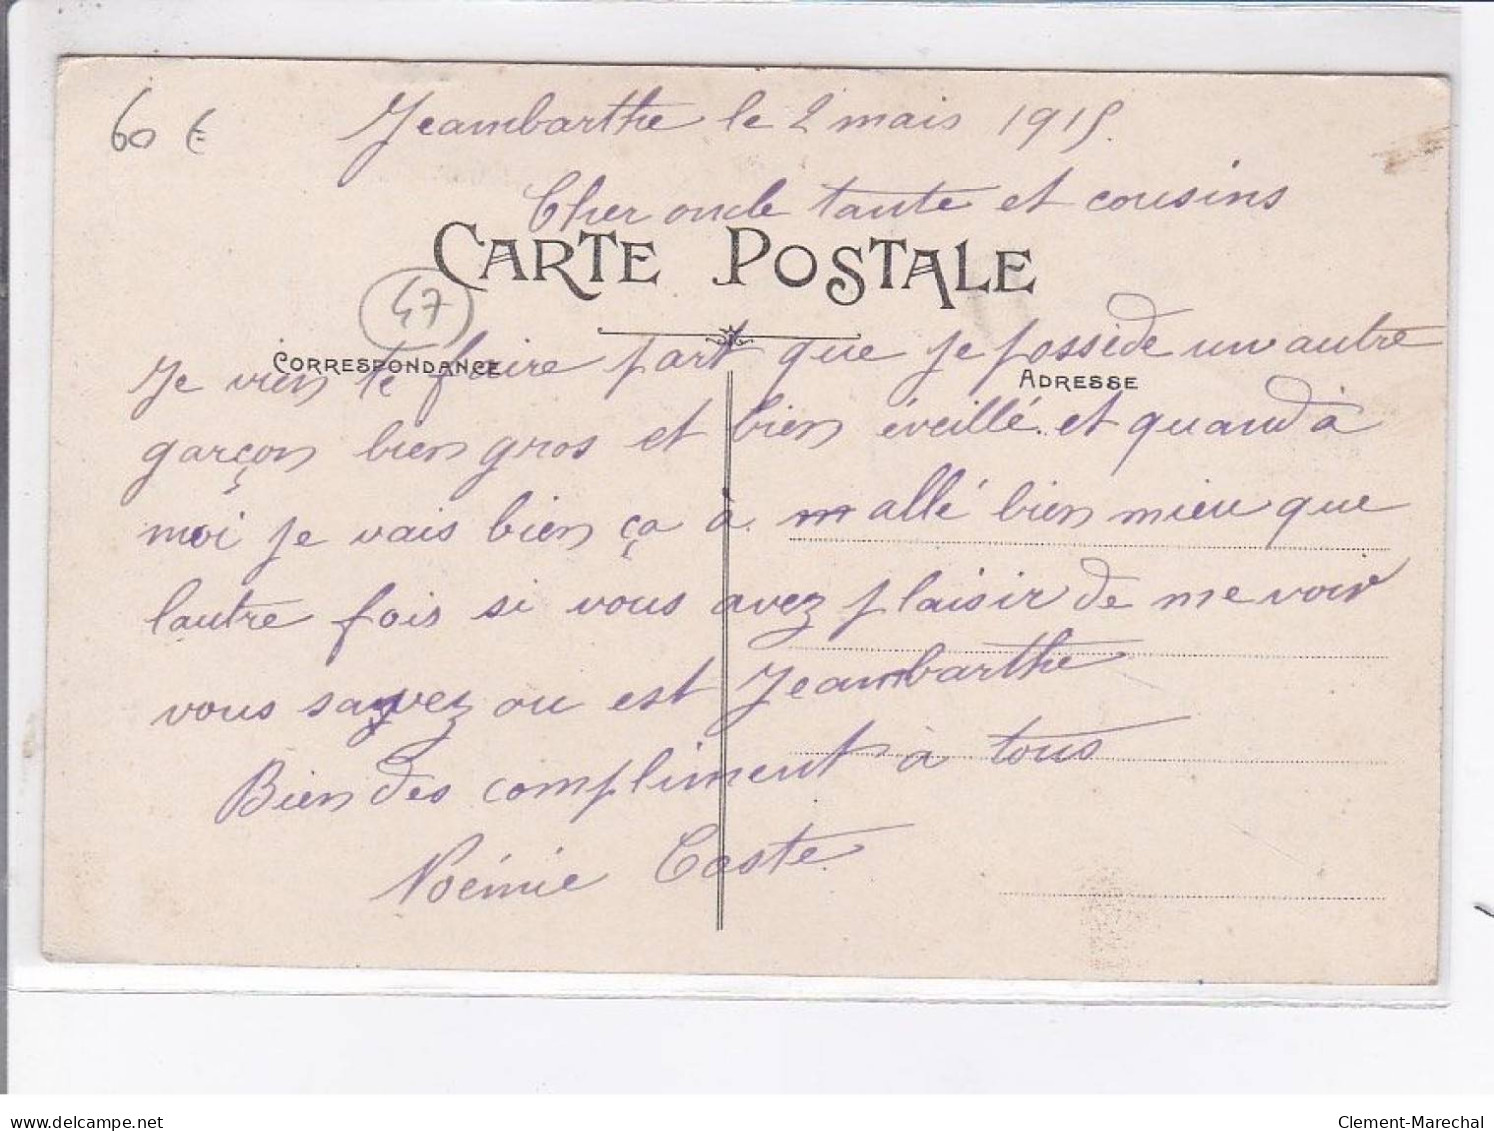 60 €
Jeambarthe le 2 mais 1915.
Cher oncle tante et cousins
CARTE POSTALE
47
CORRESPONDANCE
ADRESSE
Je vien te faire part que je posside un autre
garçon bien gros et bien éveillé et quand à
moi je vais bien ça à allé bien mieu que
lautre fois si vous avez plaisir de me voir
vous savez ou est Jeambarthe
Bien des compliment à tous
Noémie Coste
delcampe.net
Clement-Marechal